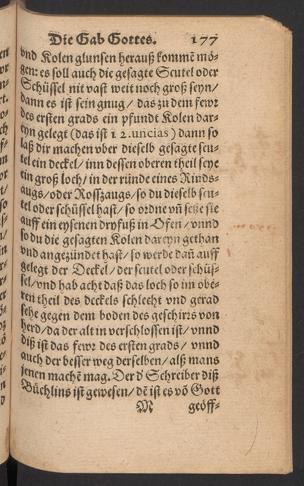 Die Gab Gottes. 177
vnd Kolen glunsen herauß kommẽ mö⸗
gen: es soll auch die gesagte Scutel oder
Schüssel nit vast weit noch groß seyn/
dann es ist sein gnug / das zu dem fewr
des ersten grads ein pfundt Kolen dar⸗
eyn gelegt (das ist 12. uncias) dann so
laß dir machen vber dieselb gesagte scu⸗
tel ein deckel/ inn dessen oberen theil seye
ein groß loch/ in der ründe eines Rinds⸗
augs/ oder Rossʒaugs/ so du dieselb scu⸗
tel oder schüssel hast/ so ordne vñ setze sie
auff ein eysenen dryfuß in Ofen / vnnd
so du die gesagten Kolen dareyn gethan
vnd angezündet hast/ so werde dañ auff
gelegt der Deckel/ der scutel oder schüs⸗
sel/ vnd hab acht daß das loch so im obe⸗
ren theil des deckels schlecht vnd gerad
sehe gegen dem boden des geschirrs von
herd/ da der alt in verschlossen ist/ vnnd
diß ist das fewr des ersten grads/ vnnd
auch der besser weg derselben/ alß mans
jenen machẽ mag. Der d' Schreiber diß
Büchlins ist gewesen/ dẽ ist es võ Gott
M geöff⸗